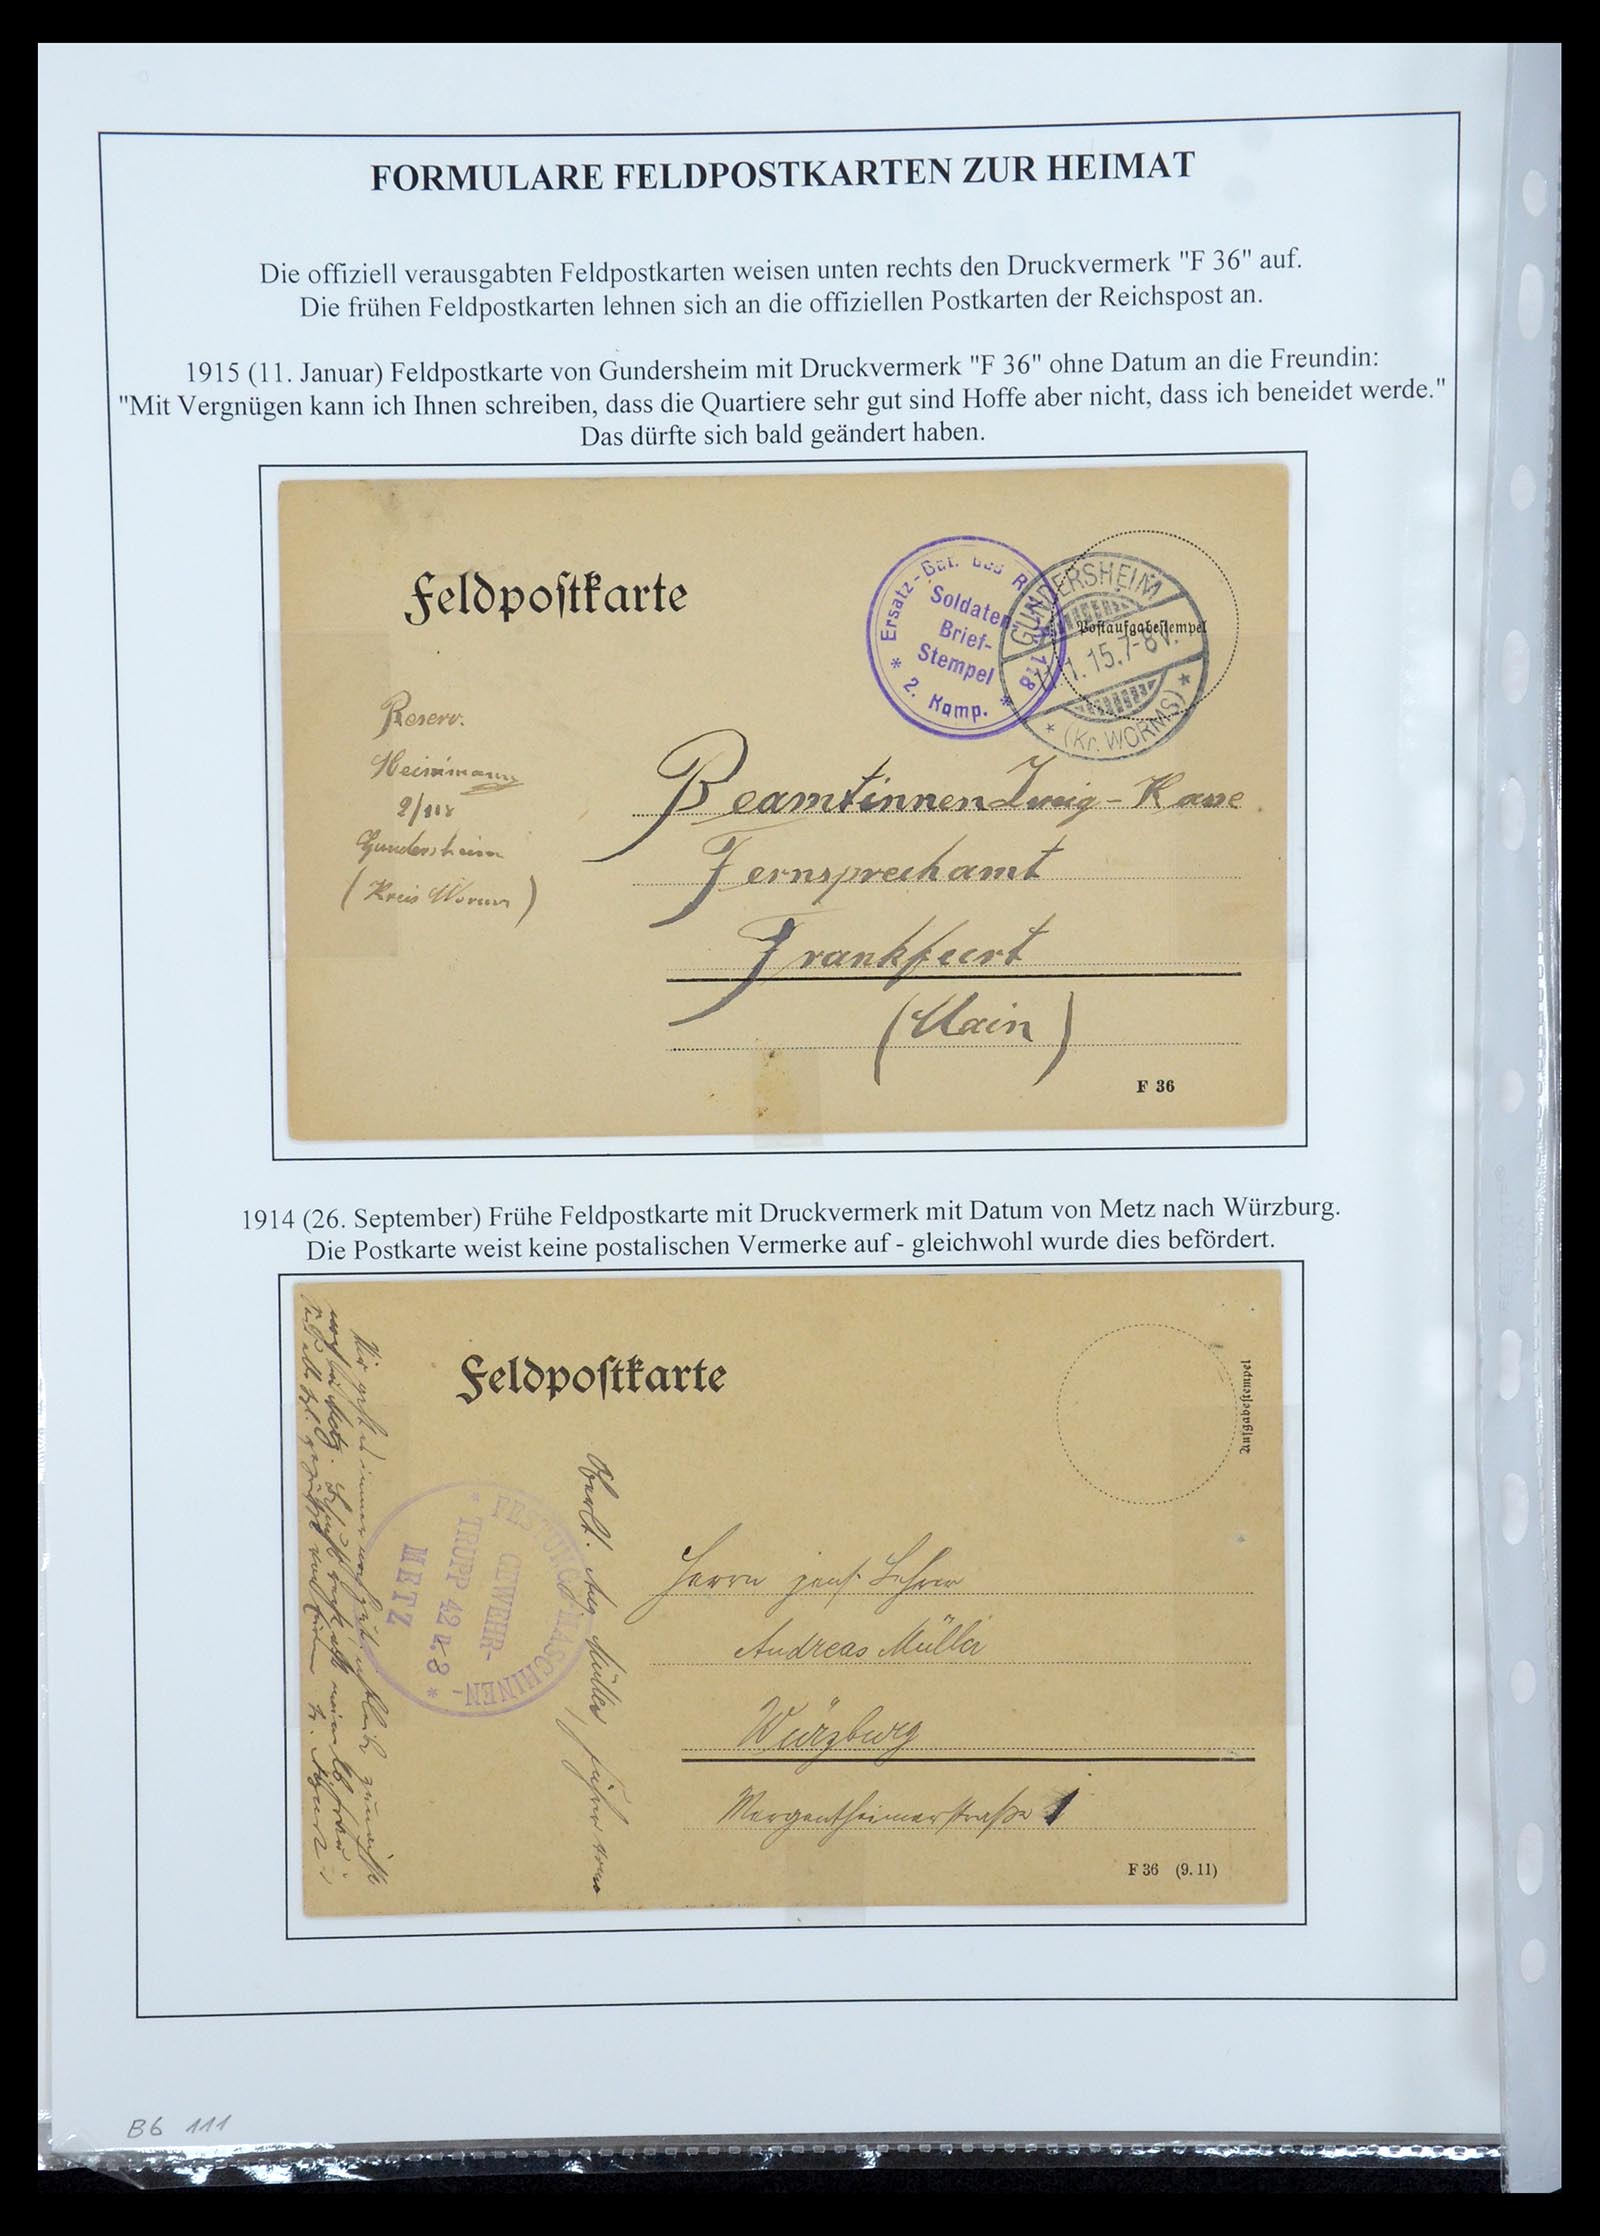 FORMULARE FELDPOSTKARTEN ZUR HEIMAT
Die offiziell verausgabten Feldpostkarten weisen unten rechts den Druckvermerk "F 36" auf.
Die frühen Feldpostkarten lehnen sich an die offiziellen Postkarten der Reichspost an.
1915 (11. Januar) Feldpostkarte von Gundersheim mit Druckvermerk "F 36" ohne Datum an die Freundin:
"Mit Vergnügen kann ich Ihnen schreiben, dass die Quartiere sehr gut sind Hoffe aber nicht, dass ich beneidet werde."
Das dürfte sich bald geändert haben.
Feldpostkarte
* Ersatz-Bat. des R. 118 *
Soldaten-
Brief-
Stempel
2. Komp.
GUNDERSHEIM
1.15.7-8V.
* (Kr. WORMS) *
Postaufgabestempel
Reserv.
Heinimann
2/118
Gundersheim
(Kreis Worms)
Beamtinnen Zweig-Kasse
Fernsprechamt
Frankfurt
(Main)
F 36
1914 (26. September) Frühe Feldpostkarte mit Druckvermerk mit Datum von Metz nach Würzburg.
Die Postkarte weist keine postalischen Vermerke auf - gleichwohl wurde dies befördert.
Feldpostkarte
Aufgabestempel
Wir immer noch
* FESTUNGS-MASCHINEN- *
GEWEHR-
TRUPP 42 u. 3
METZ
Oberlt. Aug Müller
Herrn Lehrer
Andreas Müller
Würzburg
Mergentheimerstraße 1
F 36 (9. 11)
B6 111